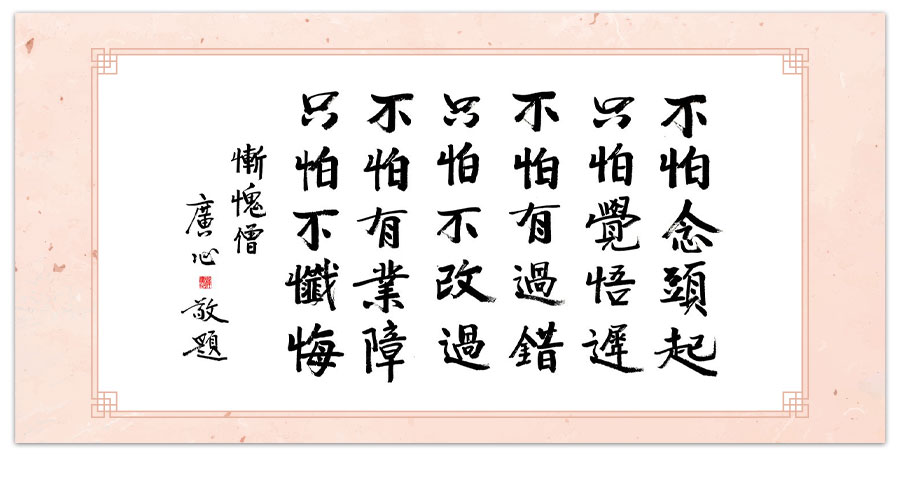 不怕念頭起
只怕覺悟遲
不怕有過錯
只怕不改過
不怕有業障
只怕不懺悔
慚愧僧
廣心 敬題